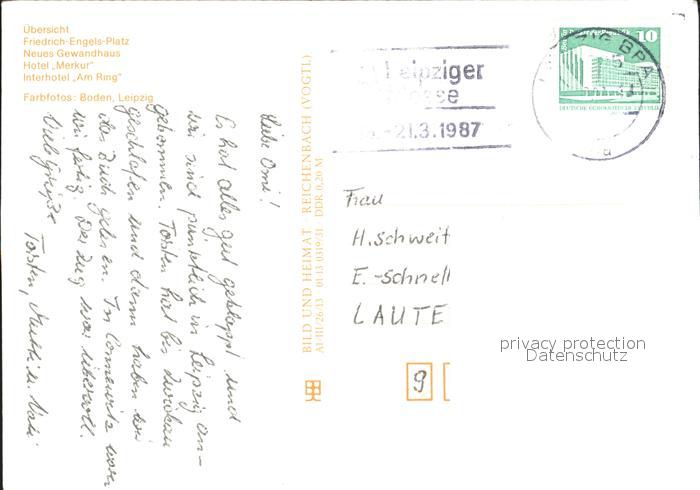 Übersicht
Friedrich-Engels-Platz
Neues Gewandhaus
Hotel „Merkur"
Interhotel „Am Ring"
Farbfotos: Boden, Leipzig
Liebe Omi!
Es hat alles gut geklappt und
wir sind pünktlich in Leipzig an-
gekommen. Torsten hat bis Zwickau
geschlafen und dann haben wir
das Buch gelesen. In Connewitz waren
wir fertig. Der Zug war übervoll.
Viele Grüße
Torsten, Mutti u. Vati
BILD UND HEIMAT REICHENBACH (VOGTL)
A1/III/26/13 01 13 0319/31 DDR 0,20 M
Leipziger
Messe
-21.3.1987
10
DEUTSCHE DEMOKRATISCHE REPUBLIK
BPA
Frau
H. Schweit
E.-Schnell
LAUTE
9
privacy protection
Datenschutz